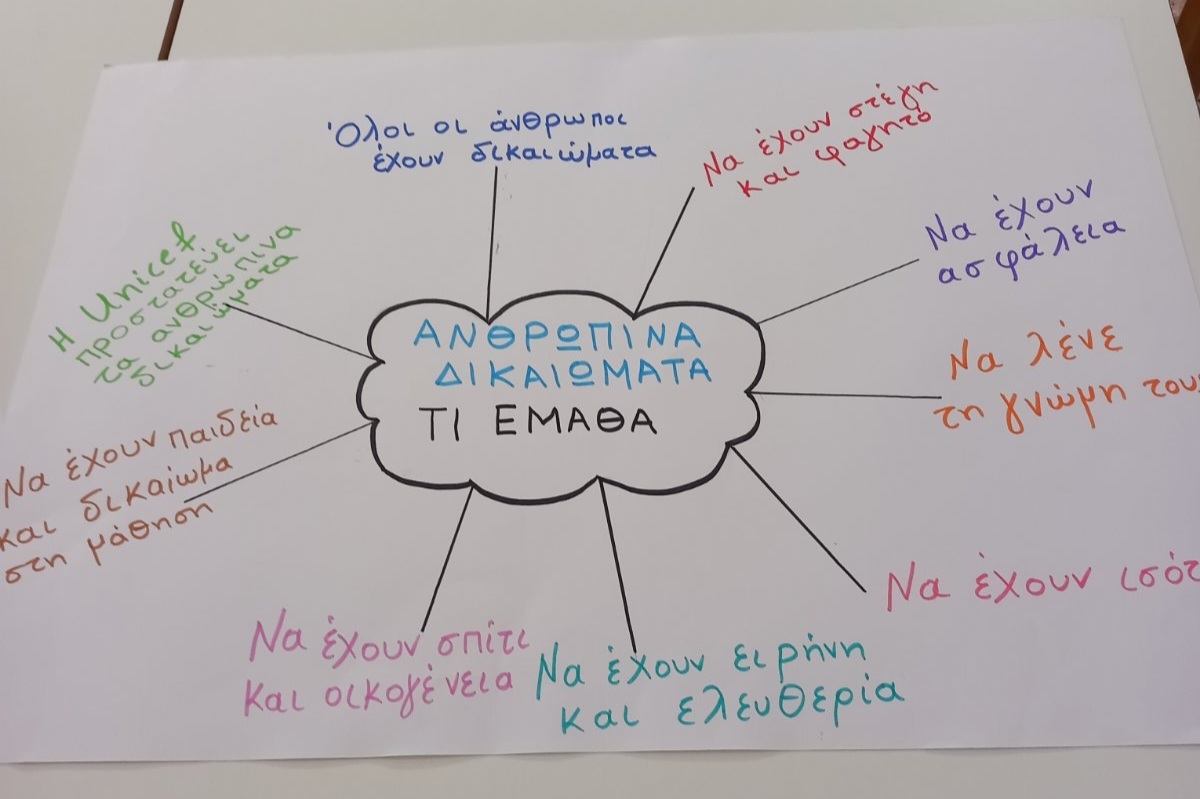 ΑΝΘΡΩΠΙΝΑ
ΔΙΚΑΙΩΜΑΤΑ
ΤΙ ΕΜΑΘΑ
Όλοι οι άνθρωποι
έχουν δικαιώματα
Να έχουν στέγη
και φαγητό
Να έχουν
ασφάλεια
Να λένε
τη γνώμη τους
Να έχουν
Να έχουν ειρήνη
και ελευθερία
Να έχουν σπίτι
και οικογένεια
Να έχουν παιδεία
και δικαίωμα
στη μάθηση
Η Unicef
προστατεύει
τα ανθρώπινα
δικαιώματα